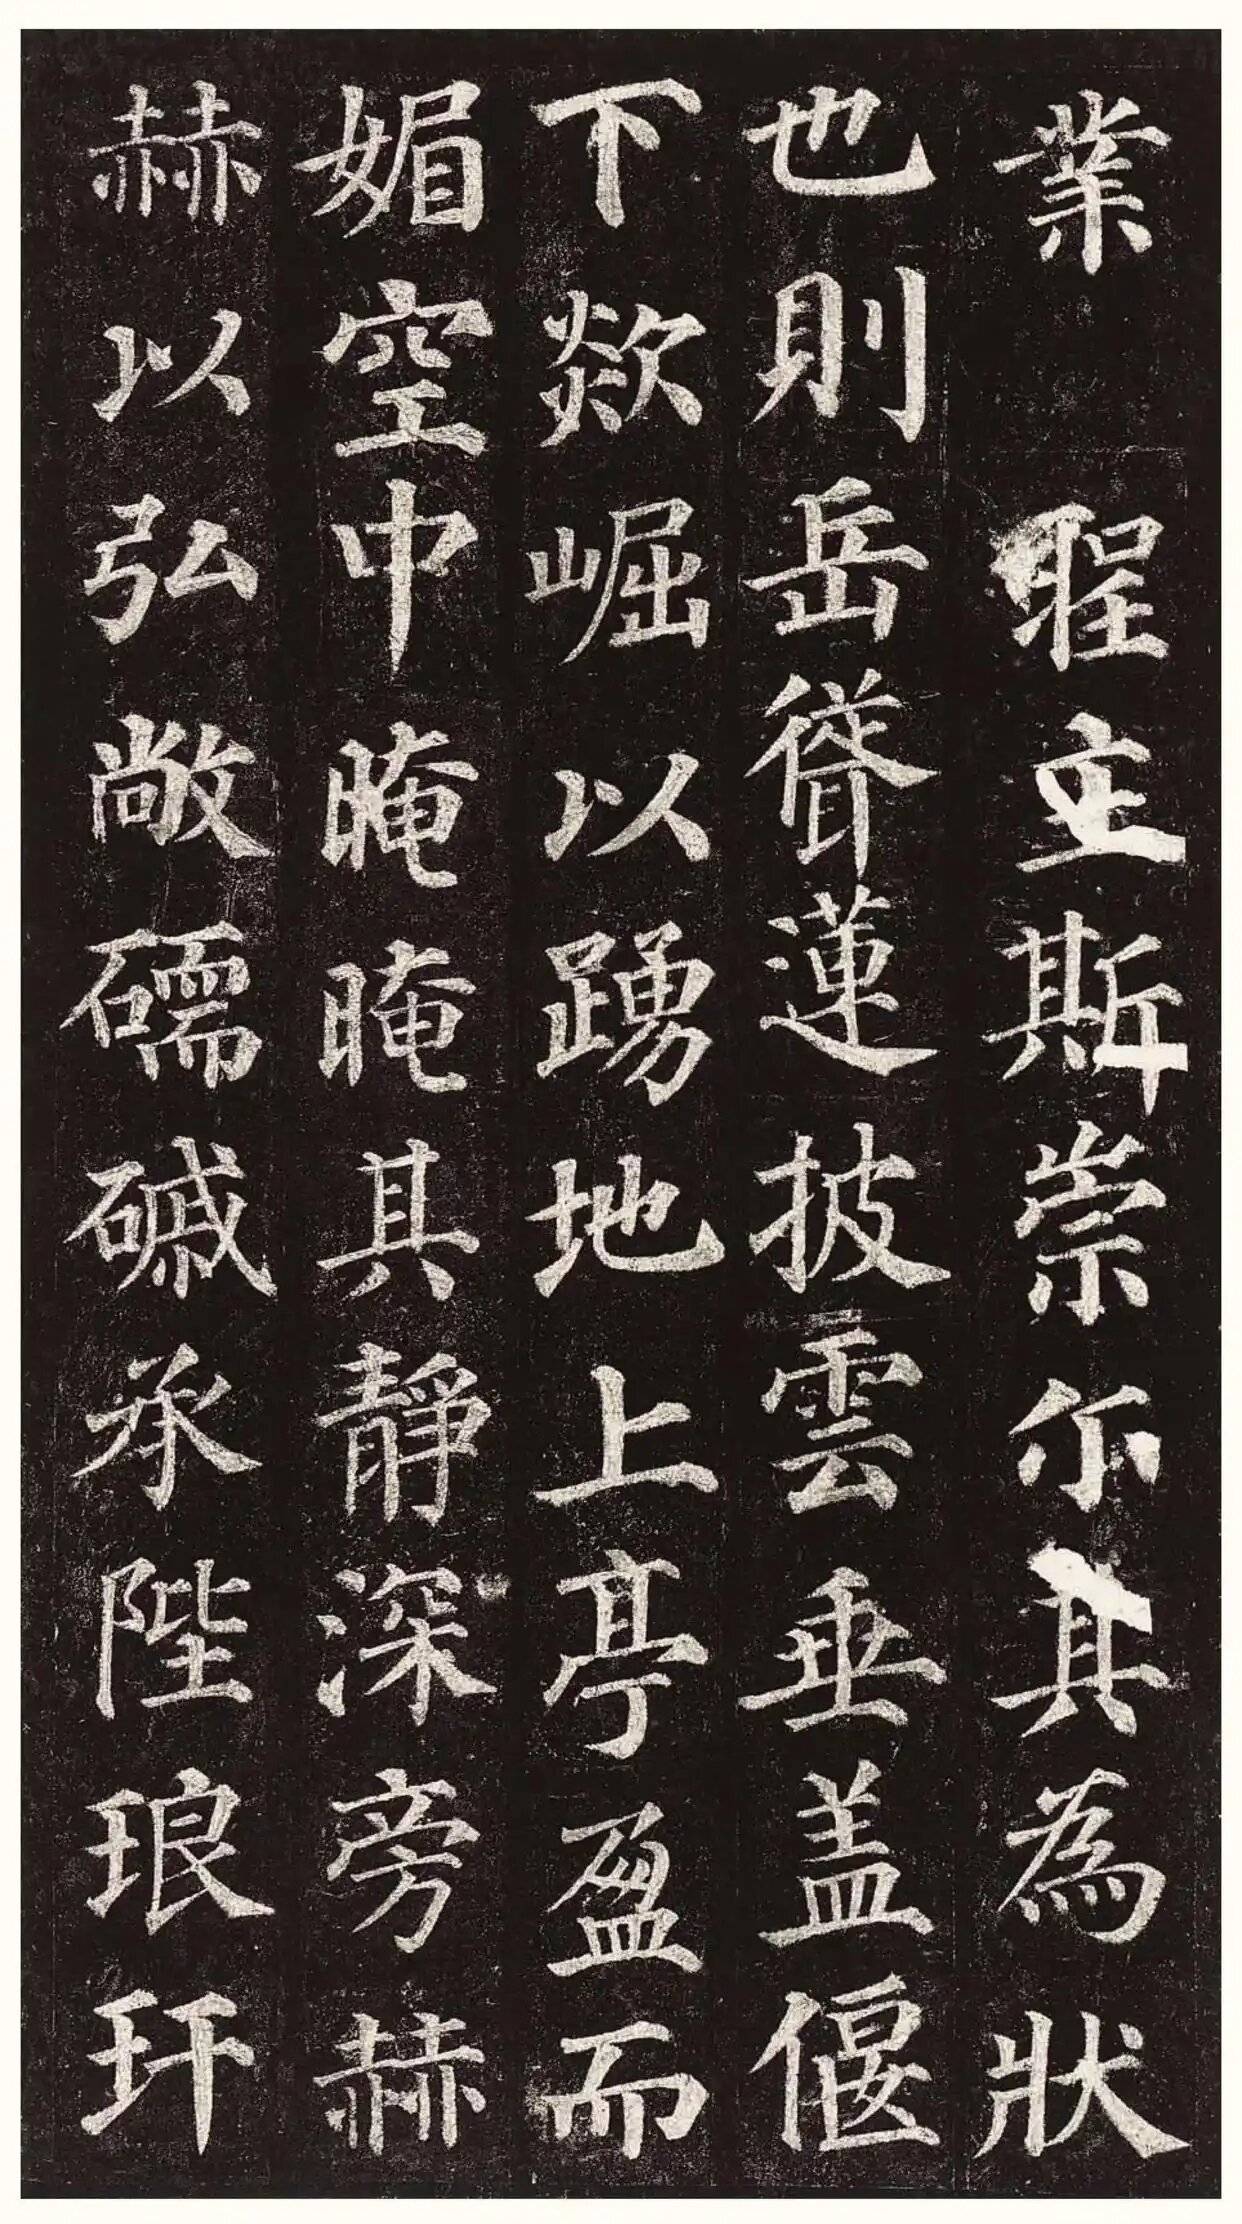 業 聖立斯崇尓其為狀
也則岳聳蓮披雲垂盖偃
下欻崛以踴地上亭盈而
媚空中晻晻其靜深旁赫
赫以弘敞礝磩承陛琅玕